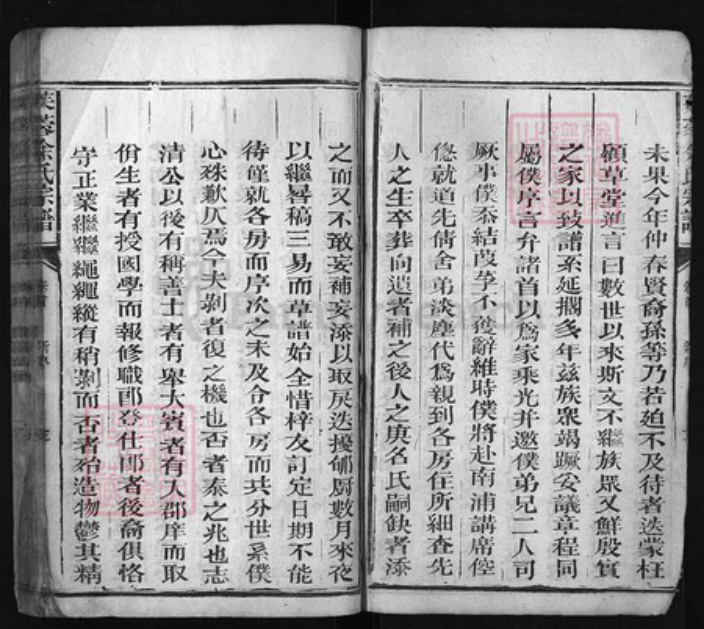 未果今年仲春賢裔孫等乃若廹不及待者迭蒙枉
顧草堂進言曰數世以來斯文不繼族眾又鮮殷實
之家以致譜系延擱多年茲族眾竭蹶妥議章程同
屬僕序言弁諸首以爲家乘光并邀僕弟兄二人司
厥事僕忝結葭莩不獲辭維時僕將赴南浦講席倥
偬就道先倩舍弟淡塵代爲親到各房住所細查先
人之生卒葬向遺者補之後人之庚名氏嗣缺者添
之而又不敢妄補妄添以取戾迭擾郇厨數月來夜
以繼晷稿三易而草譜始全惜梓友訂定日期不能
待僅就各房而序次之未及合各房而共分世系僕
心殊歉仄焉今夫剝者復之機也否者泰之兆也志
清公以後有稱善士者有舉大賓者有入郡庠而取
佾生者有授國學而報修職郎登仕郎者後裔俱恪
守正業繼繼繩繩縱有稍剝而否者殆造物鬱其精
芙蓉徐氏宗譜
卷首